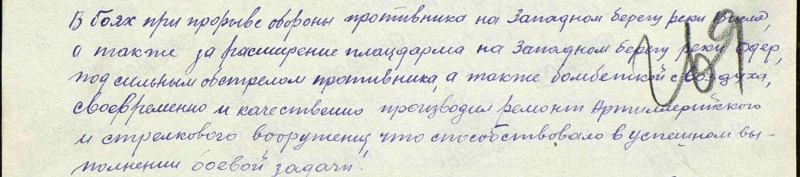 В боях при прорыве обороны противника на Западном берегу реки Висла,
а также за расширение плацдарма на Западном берегу реки Одер,
под сильным обстрелом противника, а также бомбежкой с воздуха,
своевременно и качественно производил ремонт Артиллерийского
и стрелкового вооружения, что способствовало в успешном вы-
полнении боевой задачи.